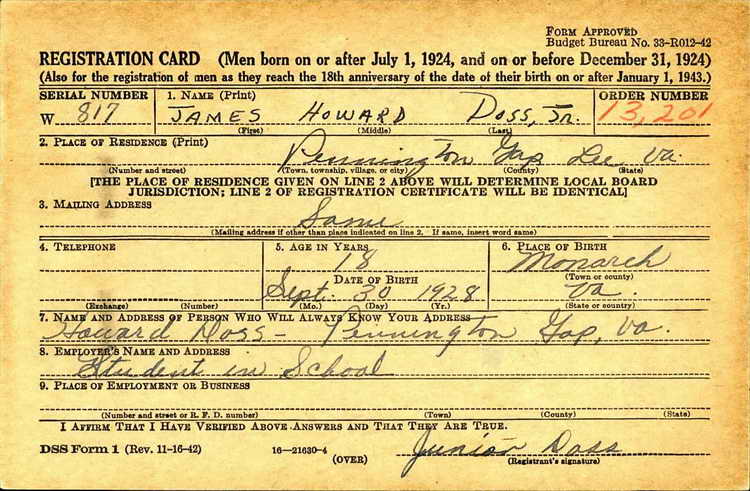 FORM APPROVED
Budget Bureau No. 33-R012-42
REGISTRATION CARD (Men born on or after July 1, 1924, and on or before December 31, 1924)
(Also for the registration of men as they reach the 18th anniversary of the date of their birth on or after January 1, 1943.)
SERIAL NUMBER 1. NAME (Print) ORDER NUMBER
W 817 JAMES HOWARD DOSS, Jr. 13,201
(First) (Middle) (Last)
2. PLACE OF RESIDENCE (Print)
Pennington Gap Lee Va.
(Number and street) (Town, township, village, or city) (County) (State)
[THE PLACE OF RESIDENCE GIVEN ON LINE 2 ABOVE WILL DETERMINE LOCAL BOARD
JURISDICTION; LINE 2 OF REGISTRATION CERTIFICATE WILL BE IDENTICAL]
3. MAILING ADDRESS
Same
(Mailing address if other than place indicated on line 2. If same, insert word same)
4. TELEPHONE 5. AGE IN YEARS 6. PLACE OF BIRTH
18 Monarch
DATE OF BIRTH (Town or county)
Sept. 30 1928 Va.
(Exchange) (Number) (Mo.) (Day) (Yr.) (State or country)
7. NAME AND ADDRESS OF PERSON WHO WILL ALWAYS KNOW YOUR ADDRESS
Howard Doss - Pennington Gap, Va.
8. EMPLOYER'S NAME AND ADDRESS
Student in School
9. PLACE OF EMPLOYMENT OR BUSINESS
(Number and street or R. F. D. number) (Town) (County) (State)
I AFFIRM THAT I HAVE VERIFIED ABOVE ANSWERS AND THAT THEY ARE TRUE.
DSS Form 1 (Rev. 11-16-42) 16-21630-4 Junior Doss
(OVER) (Registrant's signature)